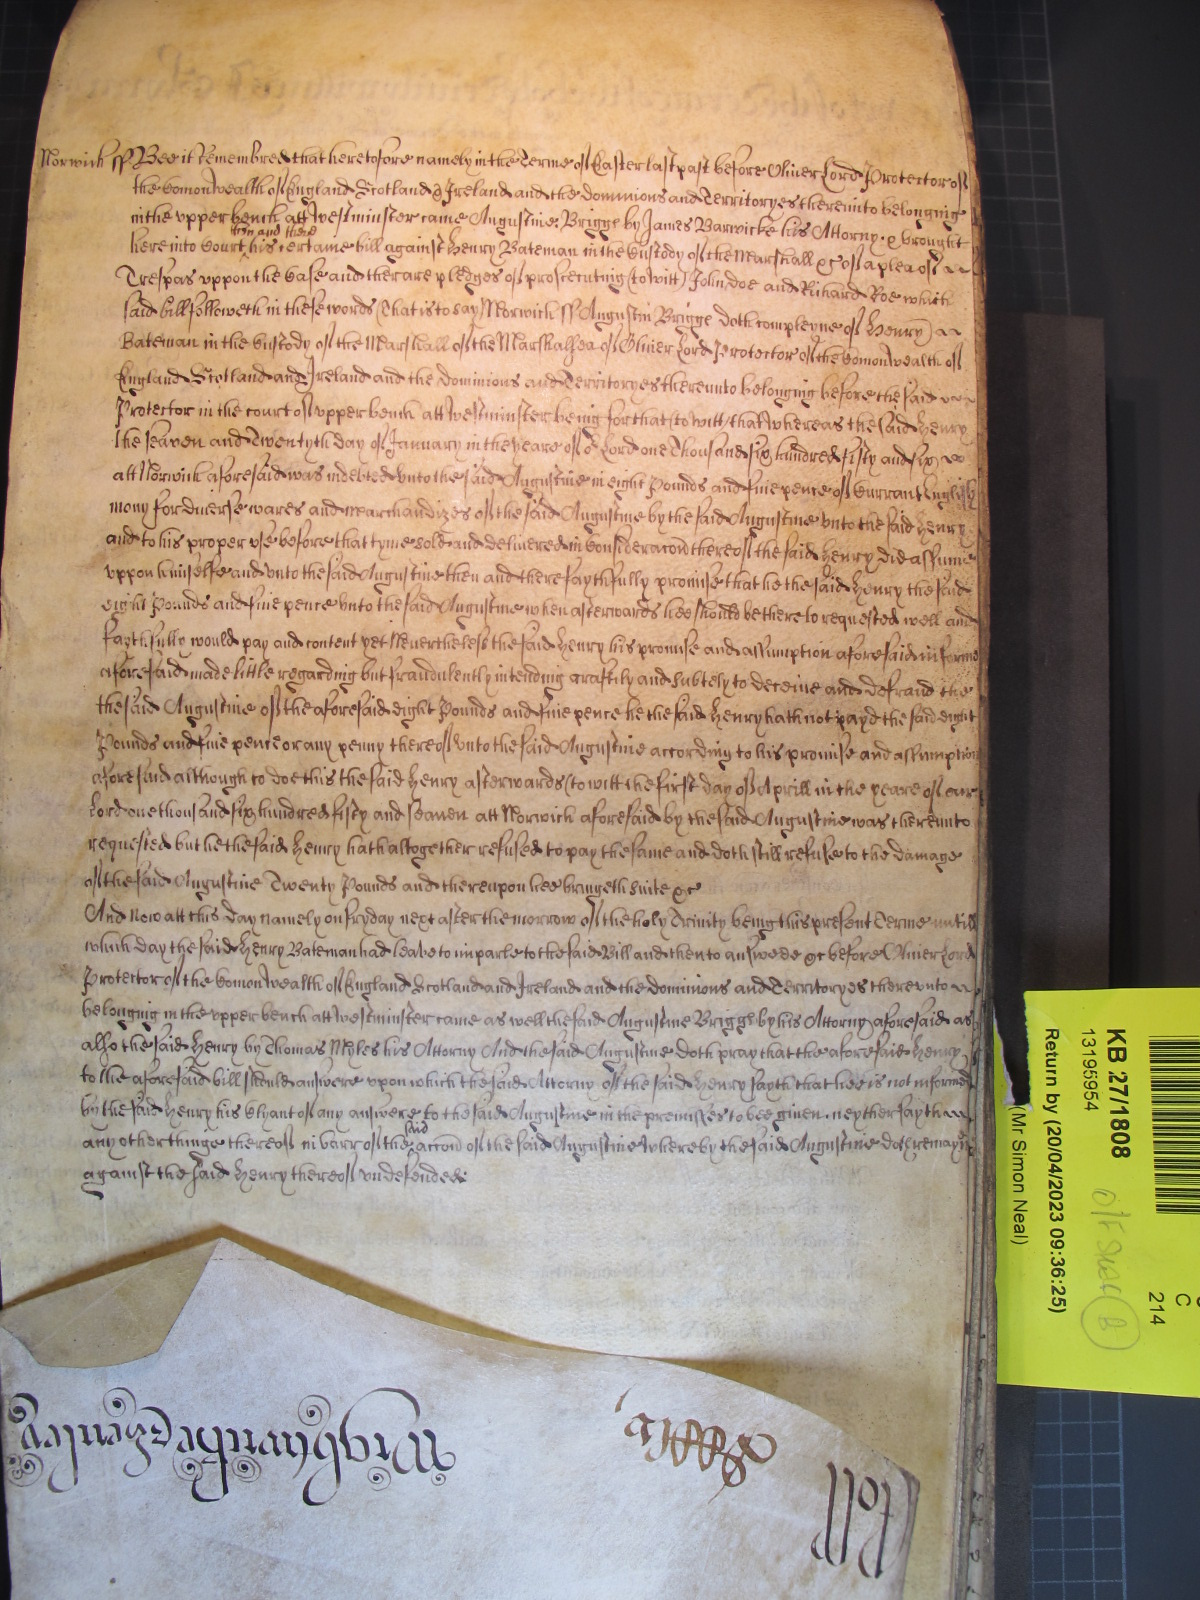 Norwich ss Bee it remembred that heretofore namely in the Terme of Easter last past before Oliver Lord Protector of
the Comonwealth of England Scotland & Ireland and the dominions and Territoryes thereunto belonging
in the vpper bench att Westminster came Augustine Brigge by James Barwicke his Attorny & brought
here into Court then and there his certaine bill against Henry Bateman in the Custody of the Marshall &c of a plea of
Trespas vppon the Case and there are pledges of prosecuting (to witt) John Doe and Richard Roe which
said bill followeth in these words (that is to say) Norwich ss Augustin Brigge doth compleyne of Henry
Bateman in the Custody of the Marshall of the Marshalsea of Oliver Lord Protector of the Comonwealth of
England Scotland and Ireland and the dominions and Territoryes thereunto belonging before the said
Protector in the court of vpper bench att Westminster being for that (to witt) that whereas the said Henry
the seaven and Twentyth day of January in the yeare of or Lord one Thousand six hundred fifty and six
att Norwich aforesaid was indebted vnto the said Augustine in eight Pounds and five pence of Currant English
mony for diverse wares and mearchandizes of the said Augustine by the said Augustine vnto the said Henry
and to his proper vse before that tyme sold and delivered in Consideracon thereof the said Henry did assume
vppon himselfe and vnto the said Augustine then and there faythfully promise that he the said Henry the said
eight Pounds and five pence vnto the said Augustine when afterwards hee should be thereto requested well and
faythfully would pay and content yet Nevertheless the said Henry his promise and assumption aforesaid in forme
aforesaid made little regarding but fraudulently intending craftily and subtely to deceive and defraud the
the said Augustine of the aforesaid eight Pounds and five pence he the said Henry hath not payd the said eight
Pounds and five pence or any penny thereof vnto the said Augustine according to his promise and assumption
aforesaid although to doe this the said Henry afterwards (to witt the first day of Aprill in the yeare of our
Lord one thousand six hundred fifty and seaven att Norwich aforesaid by the said Augustine was thereunto
requested but he the said Henry hath altogether refused to pay the same and doth still refuse to the damage
of the said Augustine Twenty Pounds and thereupon hee bringeth suite &c
And now att this day namely on fryday next after the morrow of the holy Trinity being this present Terme untill
which day the said Henry Bateman had leave to imparle to the said Bill and then to answere &c before Oliver Lord
Protector of the Comonwealth of England Scotland and Ireland and the dominions and Territoryes therevnto
belonging in the vpper bench att Westminster came as well the said Augustine Brigge by his Attorny aforesaid as
also the said Henry by Thomas Myles his Attorny And the said Augustine doth pray that the aforesaid Henry
to the aforesaid bill should answere vpon which the said Attorny of the said Henry sayth that hee is not informed
by the said Henry his Clyant of any answere to the said Augustine in the premisses to bee given neyther sayth
any other thinge thereof in barr of the said accon of the said Augustine whereby the said Augustine doth remayne
against the said Henry thereof vndefended
Wightwicke & Henley
Roll
KB 27/1808
13195954
Return by (20/04/2023 09:36:25)
(Mr Simon Neal)
C
214